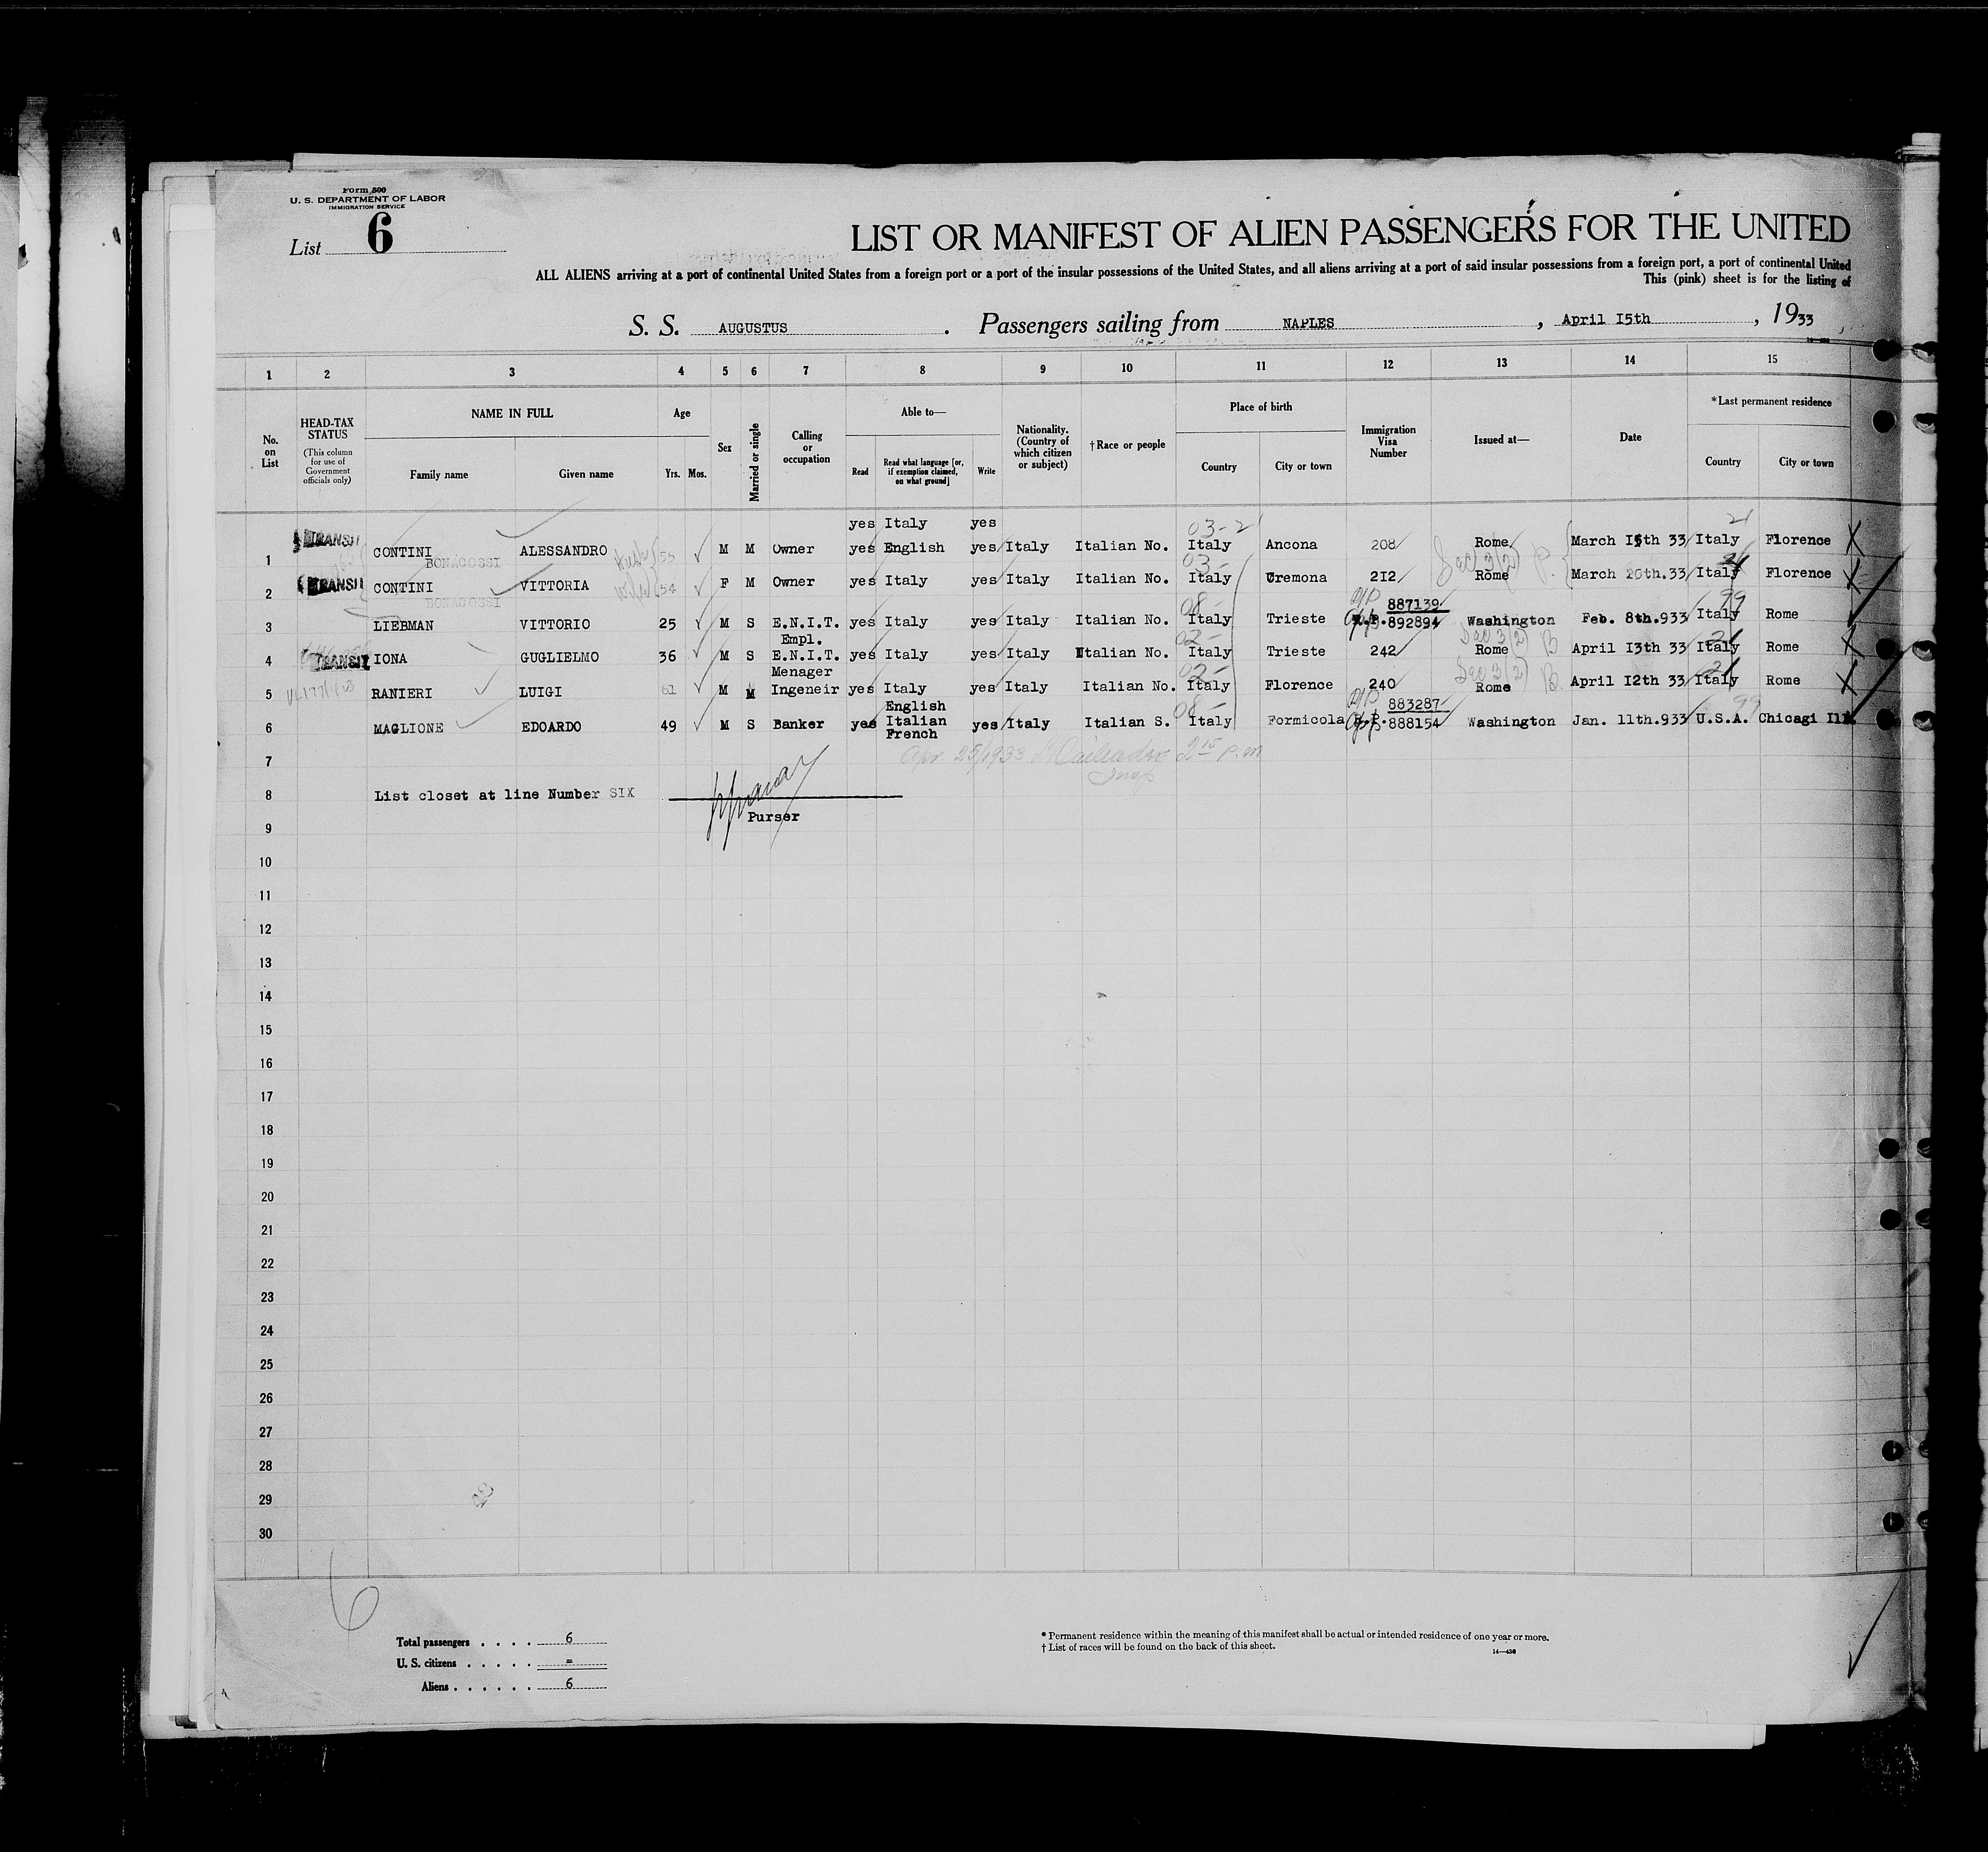 Form 500
U. S. DEPARTMENT OF LABOR
IMMIGRATION SERVICE
List 6
LIST OR MANIFEST OF ALIEN PASSENGERS FOR THE UNITED
ALL ALIENS arriving at a port of continental United States from a foreign port or a port of the insular possessions of the United States, and all aliens arriving at a port of said insular possessions from a foreign port, a port of continental United
This (pink) sheet is for the listing of
S. S. AUGUSTUS . Passengers sailing from NAPLES , April I5th , 1933
1 2 3 4 5 6 7 8 9 10 11 12 13 14 15
No. on List
HEAD-TAX STATUS (This column for use of Government officials only)
NAME IN FULL
Family name Given name
Age
Yrs. Mos.
Sex
Married or single
Calling or occupation
Able to—
Read
Read what language [or, if exemption claimed, on what ground]
Write
Nationality. (Country of which citizen or subject)
†Race or people
Place of birth
Country City or town
Immigration Visa Number
Issued at—
Date
*Last permanent residence
Country City or town
yes Italy yes 03-2 21
1 TRANSIT CONTINI ALESSANDRO 55 M M Owner yes English yes Italy Italian No. Italy Ancona 208 Rome March I5th 33 Italy Florence
BONACOSSI Sec 3(2)
2 TRANSIT CONTINI VITTORIA Wife 54 F M Owner yes Italy yes Italy Italian No. Italy Cremona 2I2 Rome March 20th.33 Italy Florence
BONACOSSI
887139 99
3 LIEBMAN VITTORIO 25 M S E.N.I.T. yes Italy yes Italy Italian No. Italy Trieste 892894 Washington Feb. 8th.933 Italy Rome
Empl. Sec 3(2) B
4 TRANSIT IONA GUGLIELMO 36 M S E.N.I.T. yes Italy yes Italy Italian No. Italy Trieste 242 Rome April I3th 33 Italy Rome
Menager Sec 3(2) B
5 RANIERI LUIGI 61 M M Ingeneir yes Italy yes Italy Italian No. Italy Florence 240 Rome April I2th 33 Italy Rome
English 883287 99
6 MAGLIONE EDOARDO 49 M S Banker yes Italian yes Italy Italian S. Italy Formicola 888154 Washington Jan. 11th.933 U.S.A. Chicagi Ill.
French
7 Apr. 25/1933 2 15 p.m
Insp
8 List closet at line Number SIX
Purser
9
10
11
12
13
14
15
16
17
18
19
20
21
22
23
24
25
26
27
28
29
30
6
Total passengers . . . . 6
U. S. citizens . . . . . =
Aliens . . . . . . 6
* Permanent residence within the meaning of this manifest shall be actual or intended residence of one year or more.
† List of races will be found on the back of this sheet.
14—436